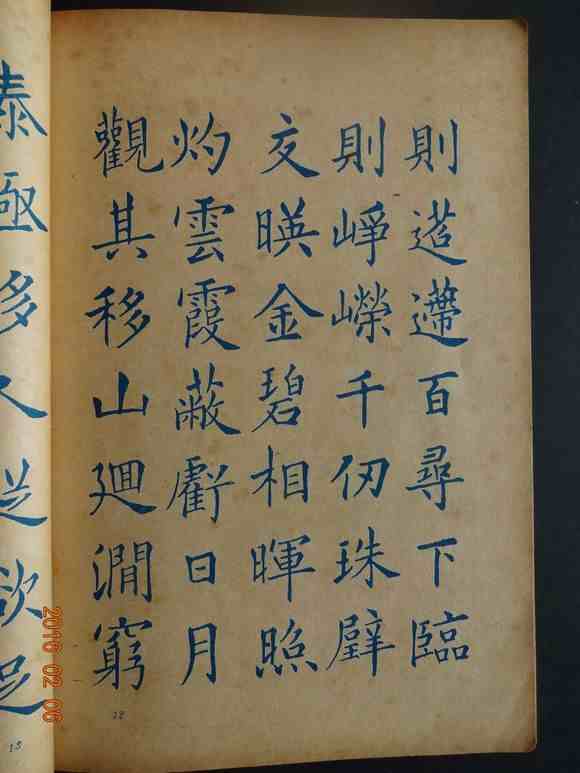 則迢遰百尋下臨
則崢嶸千仞珠壁
交暎金碧相暉照
灼雲霞蔽虧日月
觀其移山廻澗窮
泰極侈人從欲足
12
13
2016 02 06